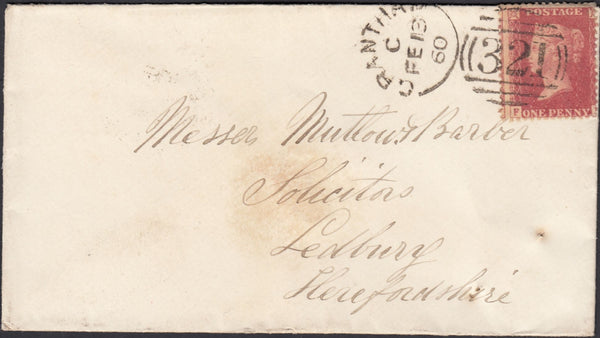 GRANTHAM
C
FE 13
60
321
POSTAGE
ONE PENNY
Messrs Muttow & Barber
Solicitors
Ledbury
Herefordshire